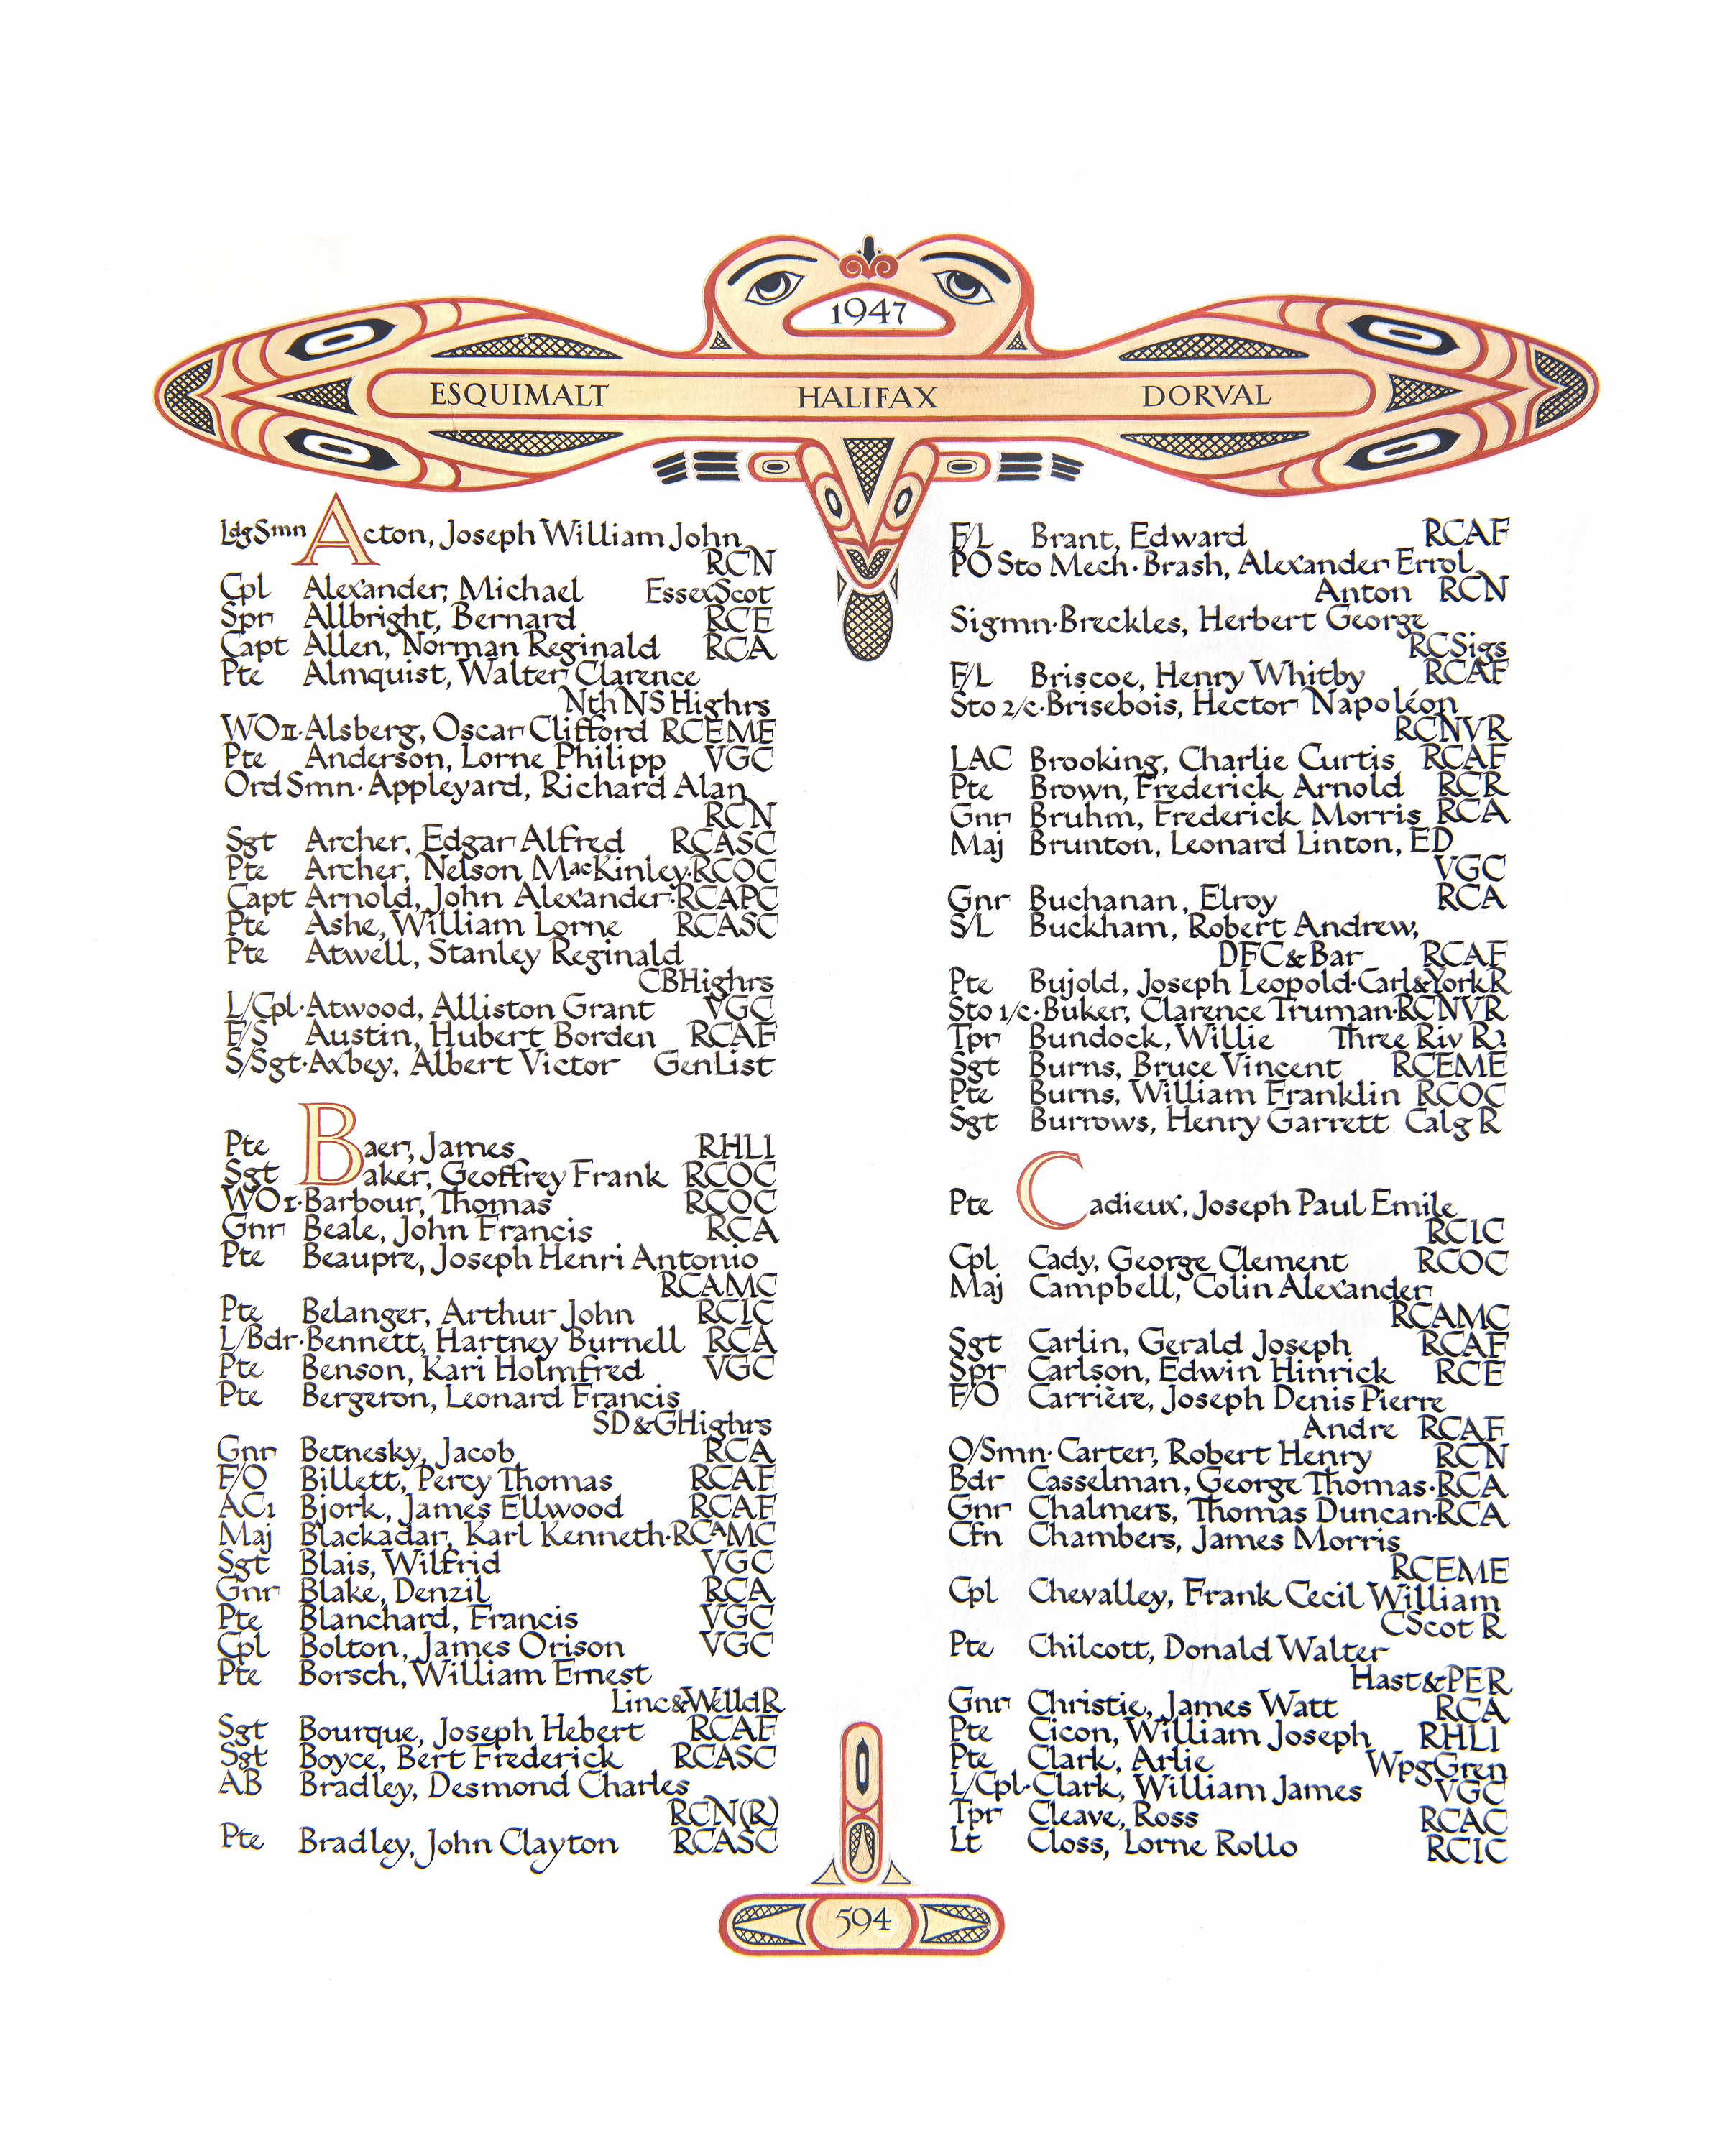 1947
ESQUIMALT HALIFAX DORVAL
LdgSmn Acton, Joseph William John
RCN
Cpl Alexander, Michael EssexScot
Spr Allbright, Bernard RCE
Capt Allen, Norman Reginald RCA
Pte Almquist, Walter Clarence
Nth NS Highrs
WOII·Alsberg, Oscar Clifford RCEME
Pte Anderson, Lorne Philipp VGC
Ord Smn·Appleyard, Richard Alan
RCN
Sgt Archer, Edgar Alfred RCASC
Pte Archer, Nelson MacKinley·RCOC
Capt Arnold, John Alexander·RCAPC
Pte Ashe, William Lorne RCASC
Pte Atwell, Stanley Reginald
CBHighrs
L/Cpl·Atwood, Alliston Grant VGC
F/S Austin, Hubert Borden RCAF
S/Sgt·Axbey, Albert Victor GenList
Pte Baer, James RHLI
Sgt Baker, Geoffrey Frank RCOC
WOI·Barbour, Thomas RCOC
Gnr Beale, John Francis RCA
Pte Beaupre, Joseph Henri Antonio
RCAMC
Pte Belanger, Arthur John RCIC
L/Bdr·Bennett, Hartney Burnell RCA
Pte Benson, Kari Holmfred VGC
Pte Bergeron, Leonard Francis
SD&GHighrs
Gnr Betnesky, Jacob RCA
F/O Billett, Percy Thomas RCAF
AC1 Bjork, James Ellwood RCAF
Maj Blackadar, Karl Kenneth·RCAMC
Sgt Blais, Wilfrid VGC
Gnr Blake, Denzil RCA
Pte Blanchard, Francis VGC
Cpl Bolton, James Orison VGC
Pte Borsch, William Ernest
Linc&WelldR
Sgt Bourque, Joseph Hebert RCAF
Sgt Boyce, Bert Frederick RCASC
AB Bradley, Desmond Charles
RCN(R)
Pte Bradley, John Clayton RCASC
F/L Brant, Edward RCAF
PO Sto Mech·Brash, Alexander Errol
Anton RCN
Sigmn·Breckles, Herbert George
RCSigs
F/L Briscoe, Henry Whitby RCAF
Sto 2/c·Brisebois, Hector Napoléon
RCNVR
LAC Brooking, Charlie Curtis RCAF
Pte Brown, Frederick Arnold RCR
Gnr Bruhm, Frederick Morris RCA
Maj Brunton, Leonard Linton, ED
VGC
Gnr Buchanan, Elroy RCA
S/L Buckham, Robert Andrew,
DFC&Bar RCAF
Pte Bujold, Joseph Leopold·Carl&YorkR
Sto 1/c·Buker, Clarence Truman·RCNVR
Tpr Bundock, Willie Three Riv R
Sgt Burns, Bruce Vincent RCEME
Pte Burns, William Franklin RCOC
Sgt Burrows, Henry Garrett Calg R
Pte Cadieux, Joseph Paul Emile
RCIC
Cpl Cady, George Clement RCOC
Maj Campbell, Colin Alexander
RCAMC
Sgt Carlin, Gerald Joseph RCAF
Spr Carlson, Edwin Hinrick RCE
F/O Carrière, Joseph Denis Pierre
Andre RCAF
O/Smn·Carter, Robert Henry RCN
Bdr Casselman, George Thomas·RCA
Gnr Chalmers, Thomas Duncan·RCA
Cfn Chambers, James Morris
RCEME
Cpl Chevalley, Frank Cecil William
CScot R
Pte Chilcott, Donald Walter
Hast&PER
Gnr Christie, James Watt RCA
Pte Cicon, William Joseph RHLI
Pte Clark, Arlie WpgGren
L/Cpl·Clark, William James VGC
Tpr Cleave, Ross RCAC
Lt Closs, Lorne Rollo RCIC
594